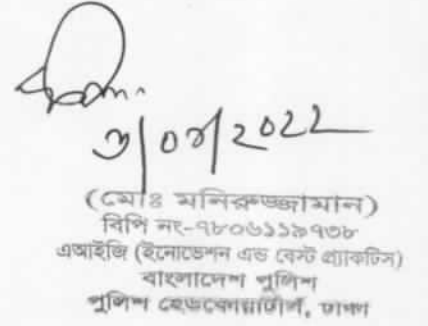 ২০২২
(মোঃ মনিরুজ্জামান)
বিপি নং-৭৮০৬১১৯৭৩৮
এআইজি (ইনোভেশন এন্ড বেস্ট প্র্যাকটিস)
বাংলাদেশ পুলিশ
পুলিশ হেডকোয়ার্টার্স, ঢাকা